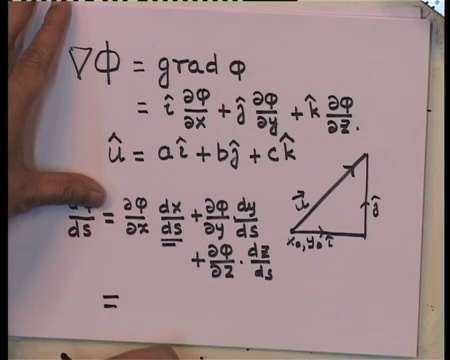 ∇Φ = grad φ
= î ∂φ/∂x + ĵ ∂φ/∂y + k̂ ∂φ/∂z.
û = aî + bĵ + ck̂
/ds = ∂φ/∂x dx/ds + ∂φ/∂y dy/ds
+ ∂φ/∂z · dz/ds
=
u⃗
ĵ
x₀, y₀ î